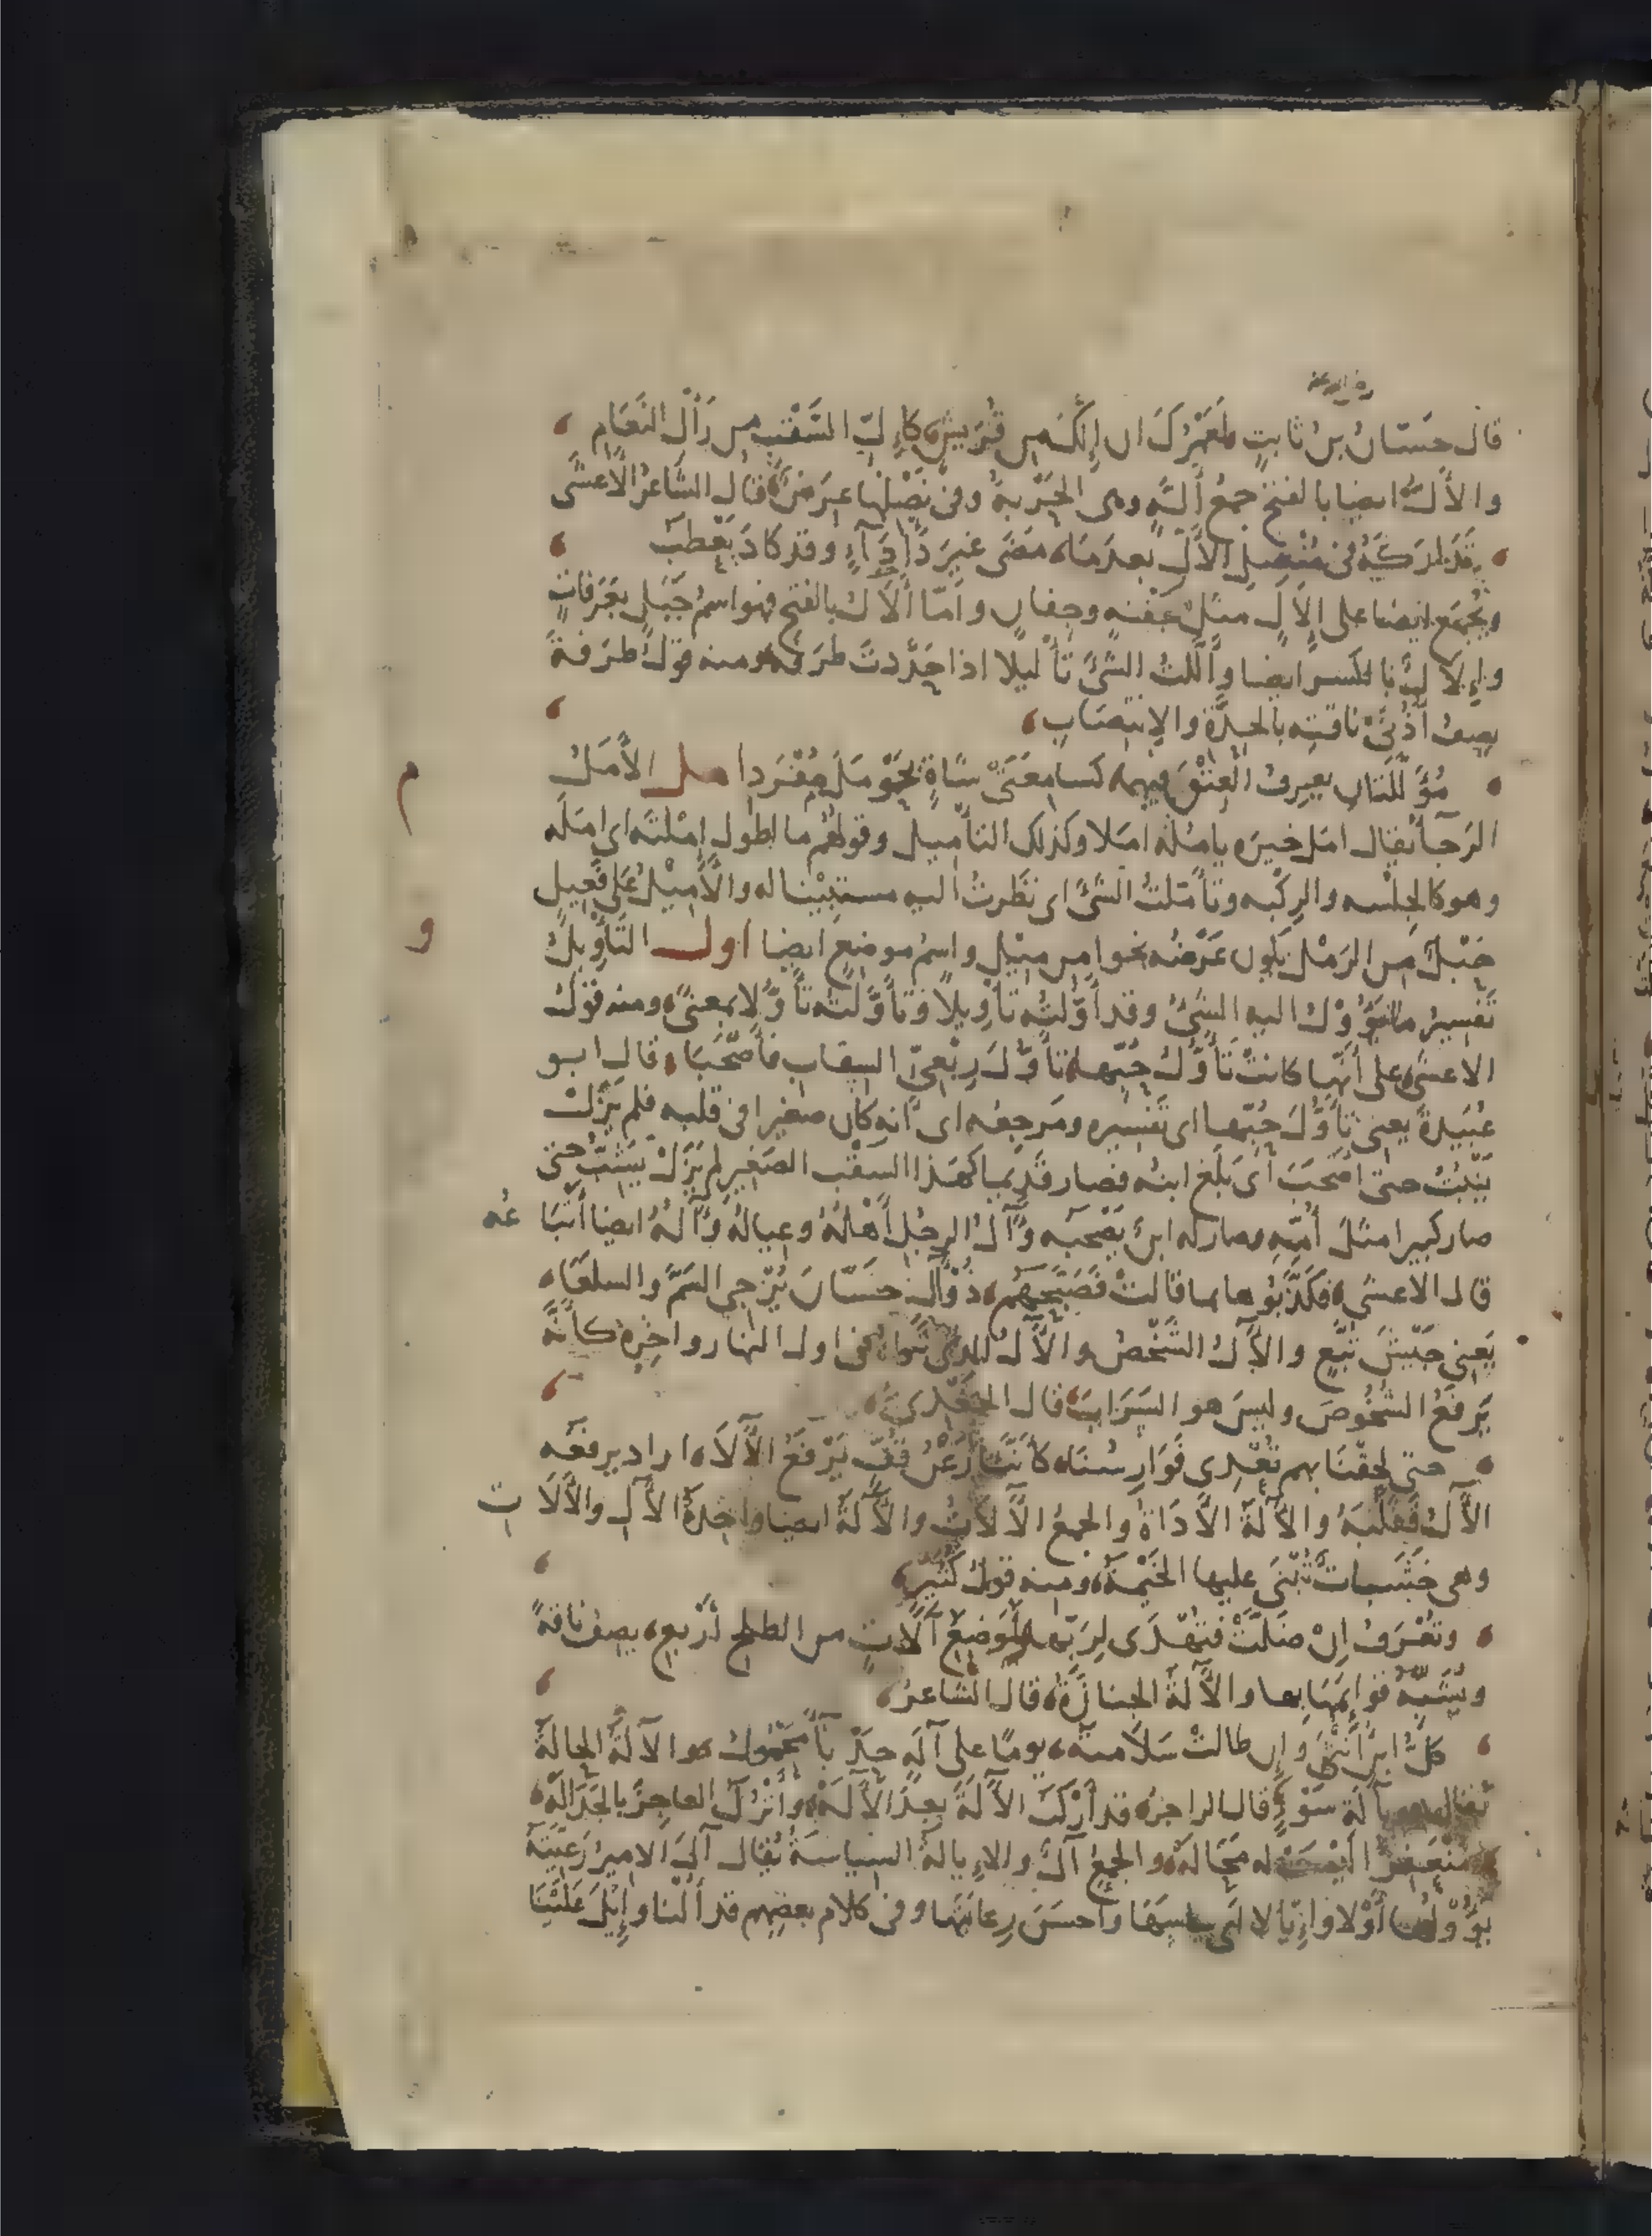 رضي الله عنه
قال حسّان بنُ ثابتٍ لعَمْرُكَ ان إِلَّكَ من قُرَيشٍ كَإِلِّ السَّقْبِ من رَأْلِ النَّعَامِ
والأَلُّ ايضا بالفتح جمعُ أَلَّةٍ وهى الحَرْبةُ وفى نَصْلِها عِرَضٌ قال الشاعرُ الأعشَى
تَدَارَكَهُ فى مُنْصِلِ الأَلِّ بعدَ مَا مَضَى غيرَ دَأْدَآءٍ وقد كادَ يَعْطَبُ
ويُجْمَع ايضا على إِلَالٍ مثلُ جَفْنه وجِفان وأمّا أَلَالٌ بالفتح فهو اسمُ جَبَلٍ بعَرَفاتٍ
وإِلَالٌ بالكسر ايضا وأَلَّلتُ الشىءَ تأْليلا اذا حَدَّدتَ طرَفَه ومنه قولُ طَرَفةَ
يصِف أُذُنَىْ ناقتِه بالحِدَّةِ والانتِصَابِ
مُؤَلَّلَتانِ يعرِفُ العِتْقَ فيهما كسامِعَتَىْ شاةٍ بِحَوْمَلَ مُفْرَدِ امل الأَمَلُ
الرَجآءُ يقال امَل خيرَه يامُلُه امَلا وكذلك التأميل وقولهُم ما اطول إِمْلَتَه اى امَلَه
وهو كالجِلْسه والرِكْبه وتأمّلتُ الشىءَ اى نظرتُ اليه مستبِيْنا له والأَمِيْلُ على فَعِيلٍ
حَبْلٌ من الرَمْل يكون عَرْضُه نحوا من مِيْلٍ واسمُ موضعٍ ايضا اول التَأْوِيلُ
تَفسِيرُ ما يَؤُوْلُ اليه الشىءُ وقد أَوَّلتُه تأْوِيلاً وتأَوَّلتُه تأَوُّلا بمعنىً ومنه قولُ
الاعشى على أَنّها كانتْ تَأَوُّلُ حُبِّها تأَوُّلَ رِبْعِىِّ السِقابِ فأَصْحَبَا قال ابو
عُبَيدةَ يعنى تأَوُّلَ حُبِّها اى تفسيره ومَرجِعُه اى انه كان صغيرا فى قلبه فلم يَزَلْ
يَنْبُتُ حتى اصْحَبَ اى بَلغ ابنُه فصار قَدِيما كهذا السَقْب الصَغيرِ لم يَزَلْ يَشِبُّ حتى
صار كبيرا مثلَ أُمِّه وصار له ابنٌ يَصْحَبه وآلُ الرجُلِ أَهْلُهُ وعيالُهُ وآلُهُ ايضا أَتبَاعُه
قال الاعشى فكَذَّبُوها بما قالتْ فَصَبَّحَهم ذُو آلِ حَسّانَ يُزْجِي السَمَّ والسلعَا
يَعنى جَيْشَ تُبَّعٍ والآلُ الشَخْصُ والآلُ الذى تَراهُ فى اول النهار واخِرِه كأَنَّه
يَرفَعُ الشُخُوصَ وليسَ هو السَرَابَ قال الجَعْدِىّ
حتى لحِقْنَا بهم تُعْدِى فَوَارِسُنَا كأَنّنَا رَعْنُ قُفٍّ يَرْفَعُ الآلَا اراد يرفعُه
الآلُ فقَلَبَهُ والآلَةُ الأَدَاةُ والجمعُ الآلَاتُ والآلَةُ ايضا واحِدةُ الآلِ والآلَات
وهى خَشَباتٌ تُبْنَى عليها الخَيْمةُ ومنه قولُ كُثَيِّرٍ
وتُعْرَفُ إِنْ ضَلَّتْ فتُهْدَى لِرَبِّها لمَوضِعِ آلَاتٍ من الطلحِ أَرْبعِ يصِفُ ناقةً
ويُشَبِّهُ قوائِمَهَا بها والآلةُ الجنازَةُ قال الشاعرُ
كلُّ ابنِ أُنْثَى وَإن طالتْ سَلَامتهُ يومًا على آلةٍ حَدْبآءَ مَحْمُولُ والآلَةُ الحالةُ
يُقال هو بآلَةِ سَوْءٍ قال الراجزُ قد أَرْكَبُ الآلَةَ بعدَ الآلَهْ وأَتْرُكُ العاجِزَ بالجَدَالَهْ
مُنْعَفِرًا ليْسَتْ له مَحَالَهْ والجمعُ آلٌ والإِيالةُ السِياسَةُ يُقال آلَ الاميرُ رَعِيّتَه
يَؤُوْلُها أَوْلا وإِيَالا اى سَاسَهَا وأَحسَنَ رِعايَتَها وفى كلام بعضِهم قد أُلْنا وإِيْلَ عَلَيْنَا
م
و